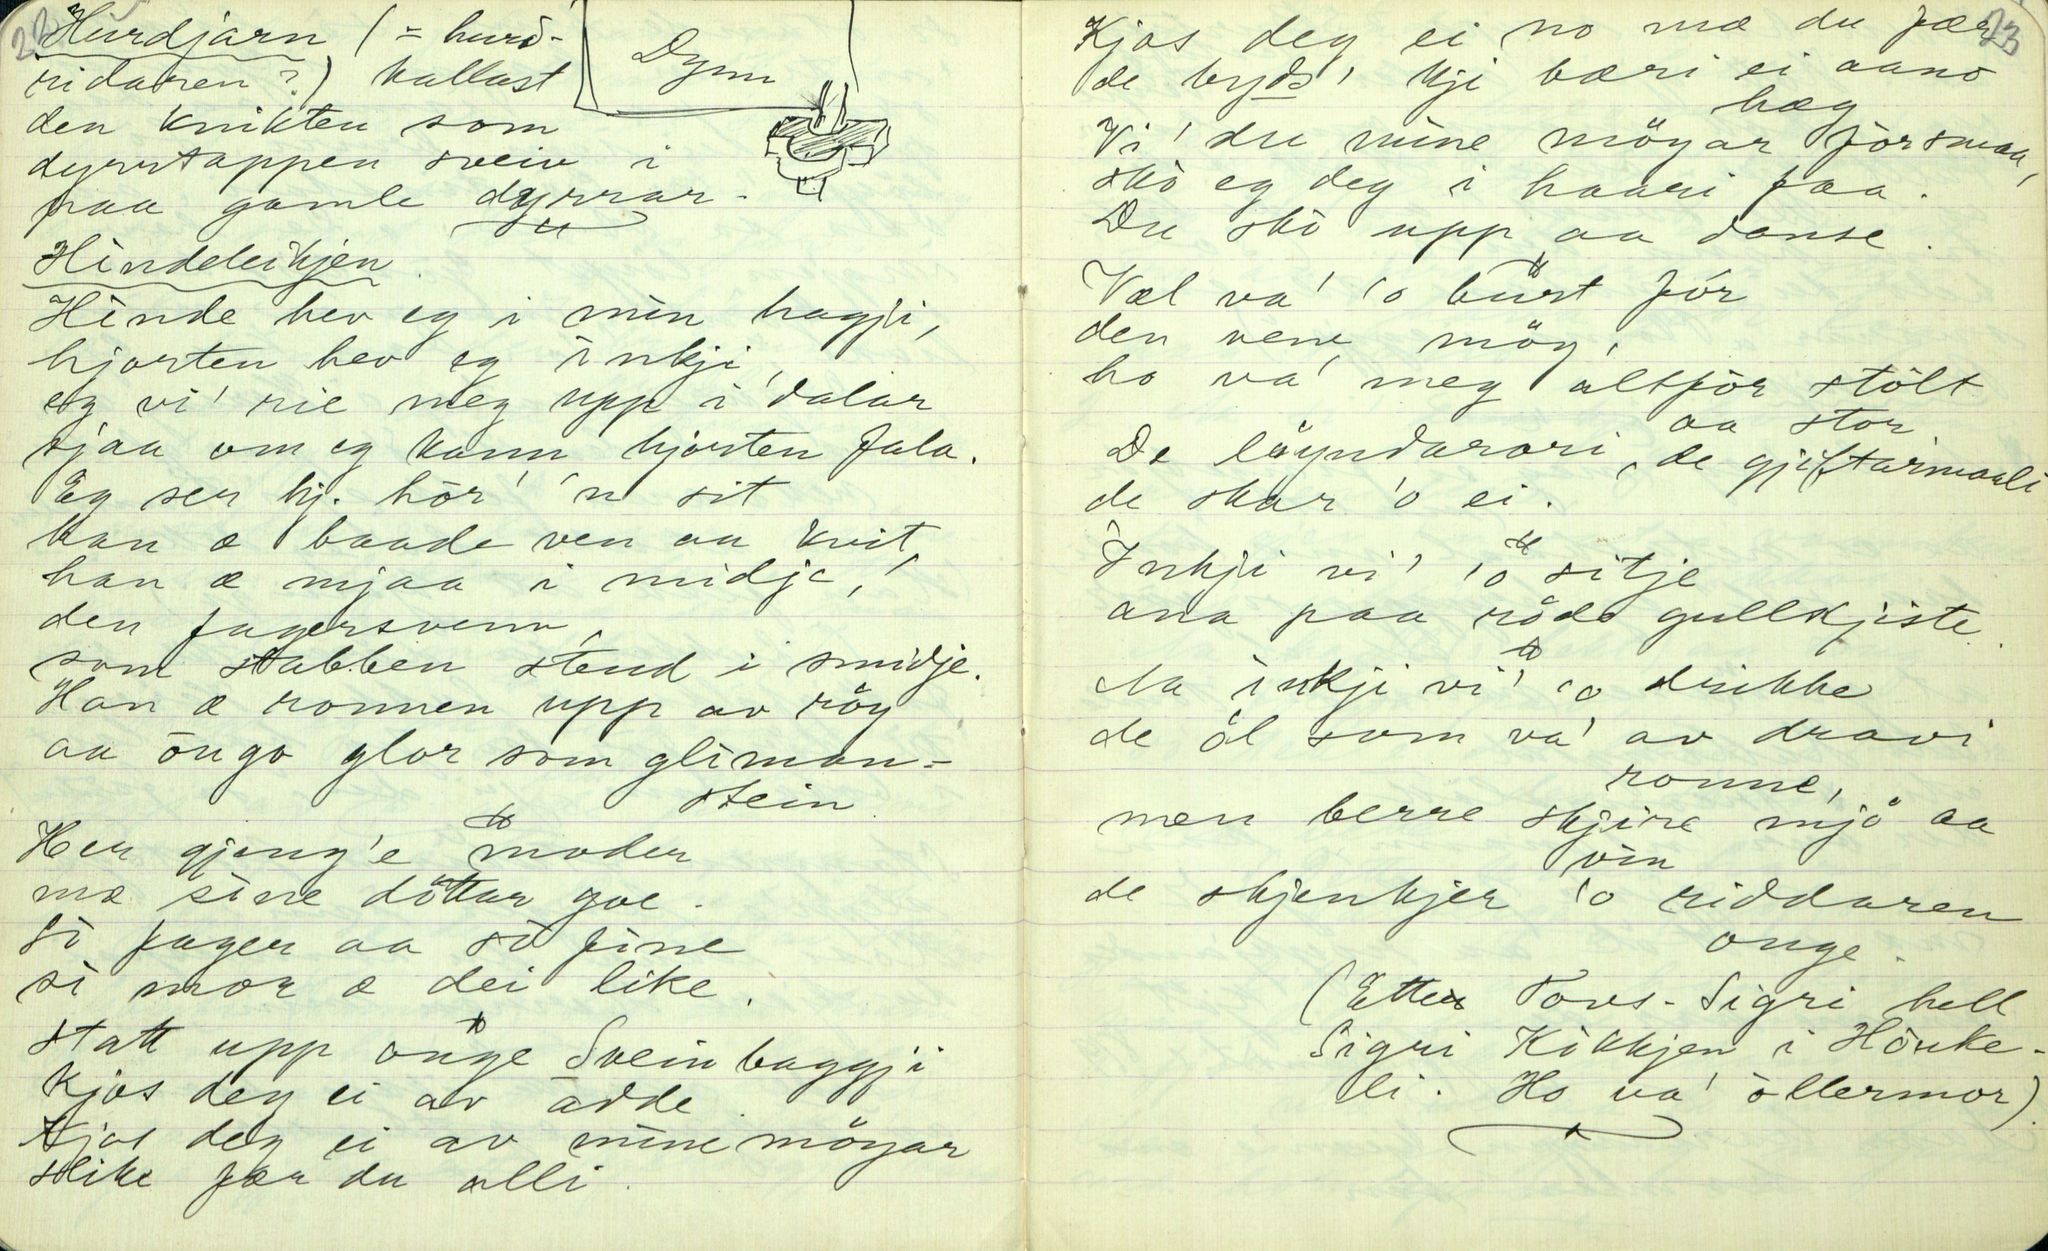 22
Hurdjarn (= hurd-
ridaren?) kallast
den knikten som
dyrrtappen sveiv i
paa gamle dyrrar.
Dyrr
Hindeleikjen
Hinde hev eg i min hagji,
hjorten hev eg inkji,
eg vi' rie meg upp i dalar
sjaa om eg kann hjorten fala.
Eg ser hj. hòr' 'n sit
han æ baade ven aa kvit,
han æ mjaa i midje,
den fagersvenn,
som stabben stend i smidje.
Han æ ronnen upp av röy
aa òugo glor som gliman-
stein
Her gjeng'e moder
mæ sine döttar goe.
Si fager aa si fine
si mor æ dei like.
Statt upp onge Svein baggji
kjos deg ei av ådde.
Kjos deg ei av mine möyar
slike fær du alli.
23
Kjos deg ei no mæ du fær
de byds' kji bæri ei aano
hæg
Vi' du mine möyar forsmaa,
skò eg deg i haari faa.
Du skò upp aa danse.
Væl va' 'o burt fòr
den vene möy,
ho va' meg altfòr stòlt
aa stor
De löyndarori, de gjiftarmaali
de skar 'o ei.
Inkji vi' 'o sitje
ana paa röde gullkjiste.
Aa inkji vi' 'o drikke
de öl som va' av dravi
ronne,
men berre skjire mjö aa
vin
de skjenkjer 'o riddaren
onge.
(Etter Tovs-Sigri hell
Sigri Kikkjen i Hòuke-
li. Ho va' òllermor).